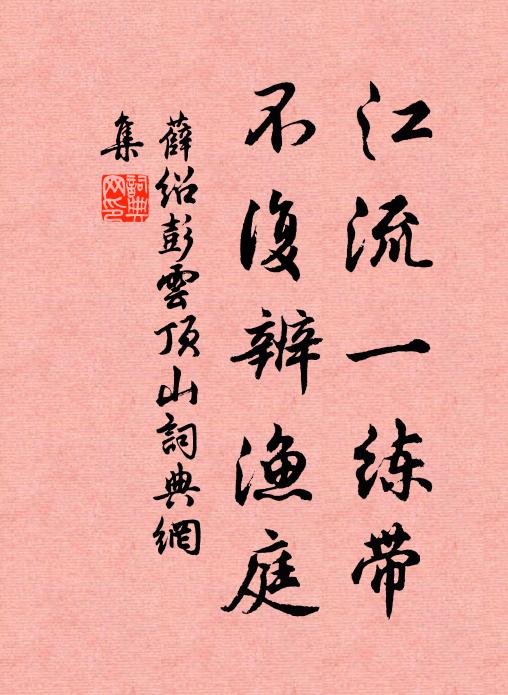 江流一练带
不復辨渔庭
薛绍彭雲顶山詞典網
集
詞典网印